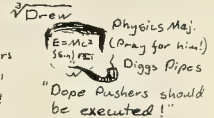 ∛Drew
Physics Maj.
(Pray for him!)
E=Mc²
Diggs Pipes
"Dope Pushers should
be executed!"
ers
!